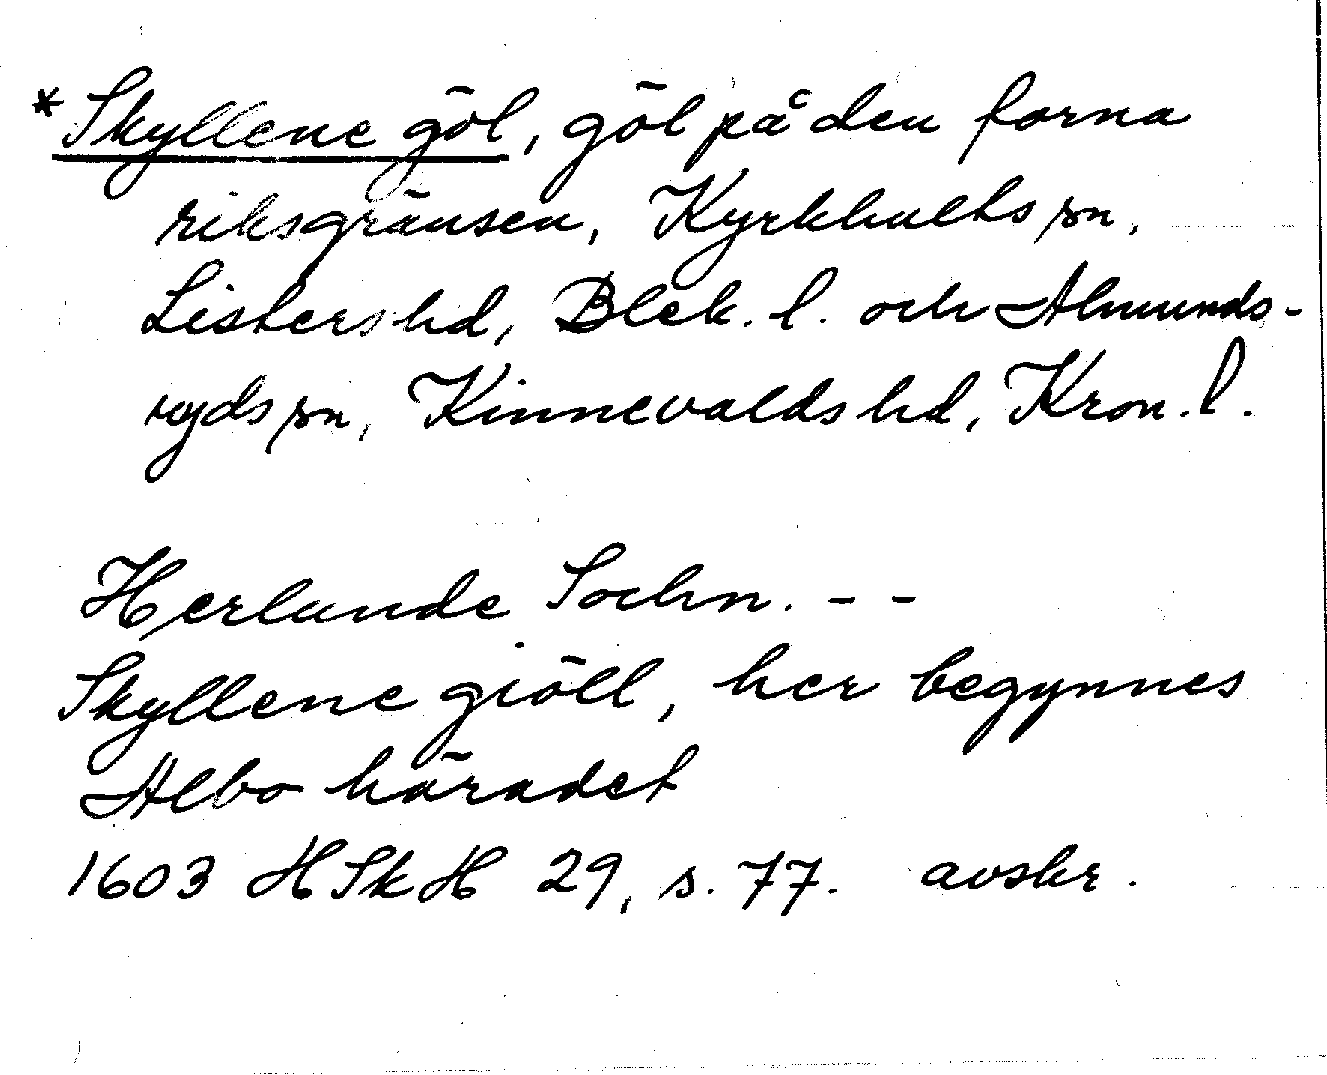 *Skyllene göl, göl på den forna
riksgränsen, Kyrkhults sn,
Listers hd, Blek. l. och Almunds-
ryds sn, Kinnevalds hd, Kron. l.
Herlunde Sochn. - -
Skyllene giöll, her begynnes
Albo häradet
1603 HSkH 29, s. 77. avskr.